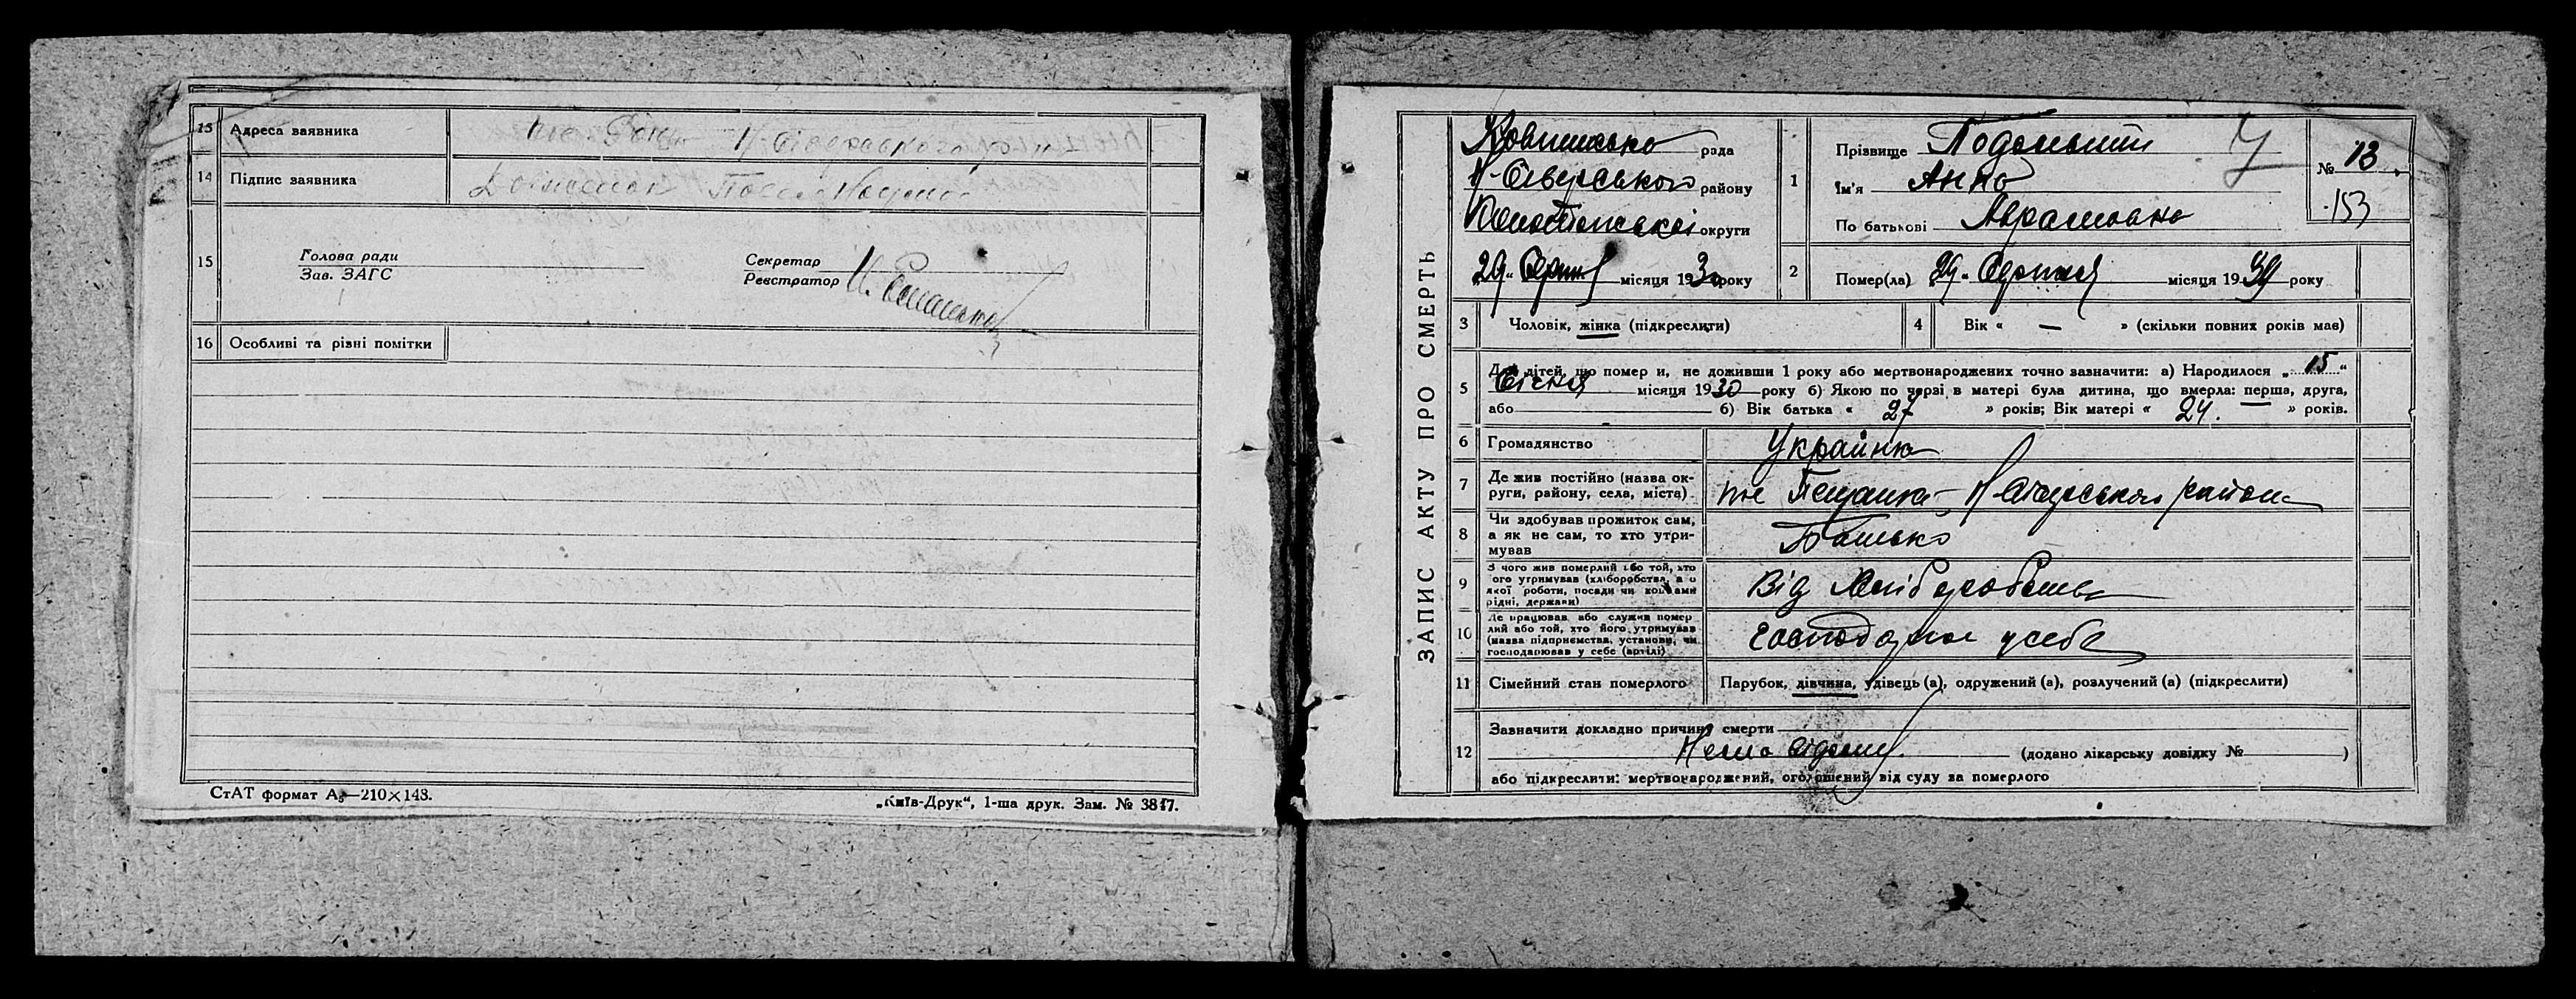 13 Адреса заявника
14 Підпис заявника
15 Голова ради
Зав. ЗАГС
Секретар
Реєстратор
16 Особливі та різні помітки
СтАТ формат А5—210×148.
„Київ-Друк“, 1-ша друк. Зам. № 3817.
ЗАПИС АКТУ ПРО СМЕРТЬ
рада
Н-Сіверського району
Конотопської округи
29 Серпня місяця 1930 року
1 Прізвище
Ім'я Анна
По батькові Аврамовна
№ 13
153
2 Помер(ла) 29 Серпня місяця 1930 року
3 Чоловік, жінка (підкреслити)
4 Вік « — » (скільки повних років мав)
5 Для дітей, що померли, не доживши 1 року або мертвонароджених точно зазначити: а) Народилося „15“
Січня місяця 1930 року б) Якою по черзі в матері була дитина, що вмерла: перша, друга,
або б) Вік батька « 27 » років; Вік матері « 24. » років.
6 Громадянство Українка
7 Де жив постійно (назва ок-
руги, району, села, міста) Н-Сіверського района
8 Чи здобував прожиток сам,
а як не сам, то хто утри-
мував Батько
9 З чого жив померлий або той, хто
його утримував (хліборобства, а о
якої роботи, посади чи коштами
рідні, держави) Від хліборобства
10 Де працював або служив помер
лий або той, хто його утримував
(назва підприємства, установи, чи
господарював у себе (артілі) у себе
11 Сімейний стан померлого Парубок, дівчина, удівець (а), одружений (а), розлучений (а) (підкреслити)
12 Зазначити докладно причину смерти
(додано лікарську довідку № )
або підкреслити: мертвонароджений, оголошений від суду за померлого